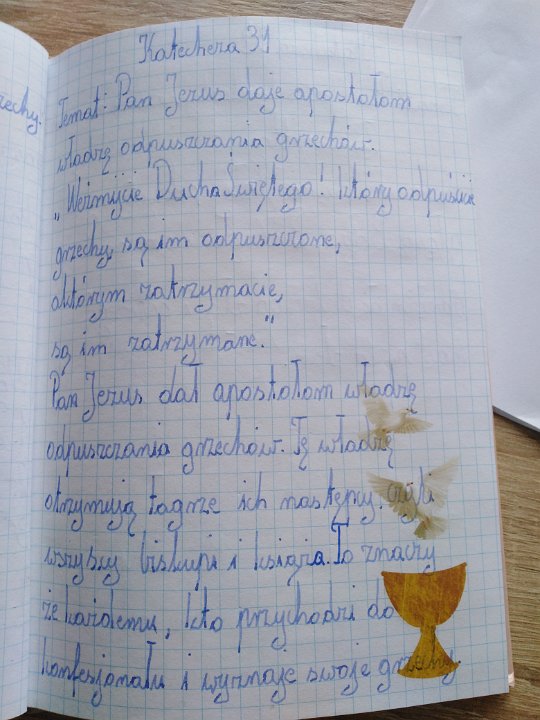 rzechy.
Katecheza 31
Temat: Pan Jezus daje apostołom
władzę odpuszczania grzechów.
"Weźmijcie Ducha Świętego! którym odpuścicie
grzechy, są im odpuszczone,
a którym zatrzymacie,
są im zatrzymane."
Pan Jezus dał apostołom władzę
odpuszczania grzechów. Tę władzę
otrzymują także ich następcy, czyli
wszyscy biskupi i księża. To znaczy
że każdemu, kto przychodzi do
konfesjonału i wyznaje swoje grzechy